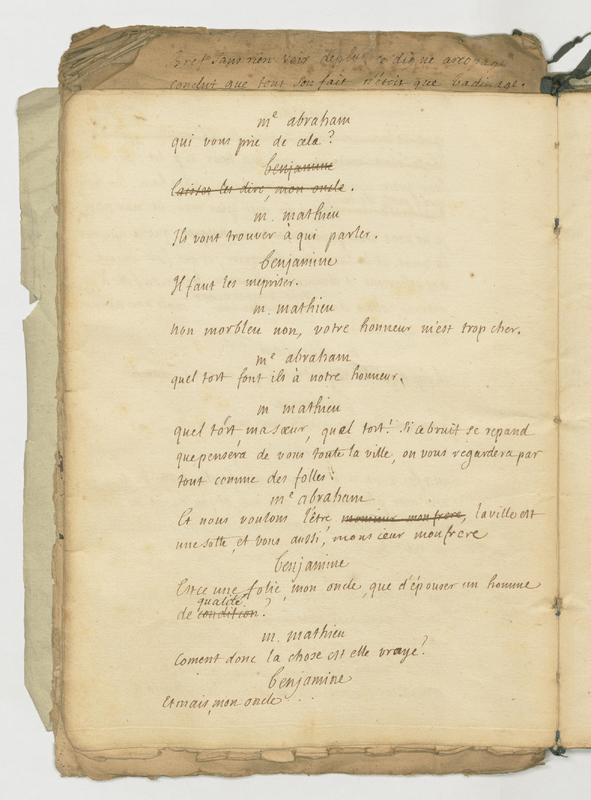 conclut que tout son fait n'étoit que badinage.
mᵉ abraham
qui vous prie de cela?
benjamine
laissez les dire, mon oncle.
m. mathieu
Ils vont trouver à qui parler.
benjamine
Il faut les mepriser.
m. mathieu
non morbleu non, votre honneur m'est trop cher.
mᵉ abraham
quel tort font ils à notre honneur.
m mathieu
quel tort ma sœur, quel tort! Si ce bruit se repand
que pensera de vous toute la ville, on vous regardera par
tout comme des folles.
mᵉ abraham
Et nous voulons l'être, monsieur mon frere, la ville est
une sotte, et vous aussi, monsieur mon frere
benjamine
Est ce une folie, mon oncle, que d'épouser un homme
qualité
de condition?
m. mathieu
coment donc la chose est elle vraye?
benjamine
Et mais, mon oncle...